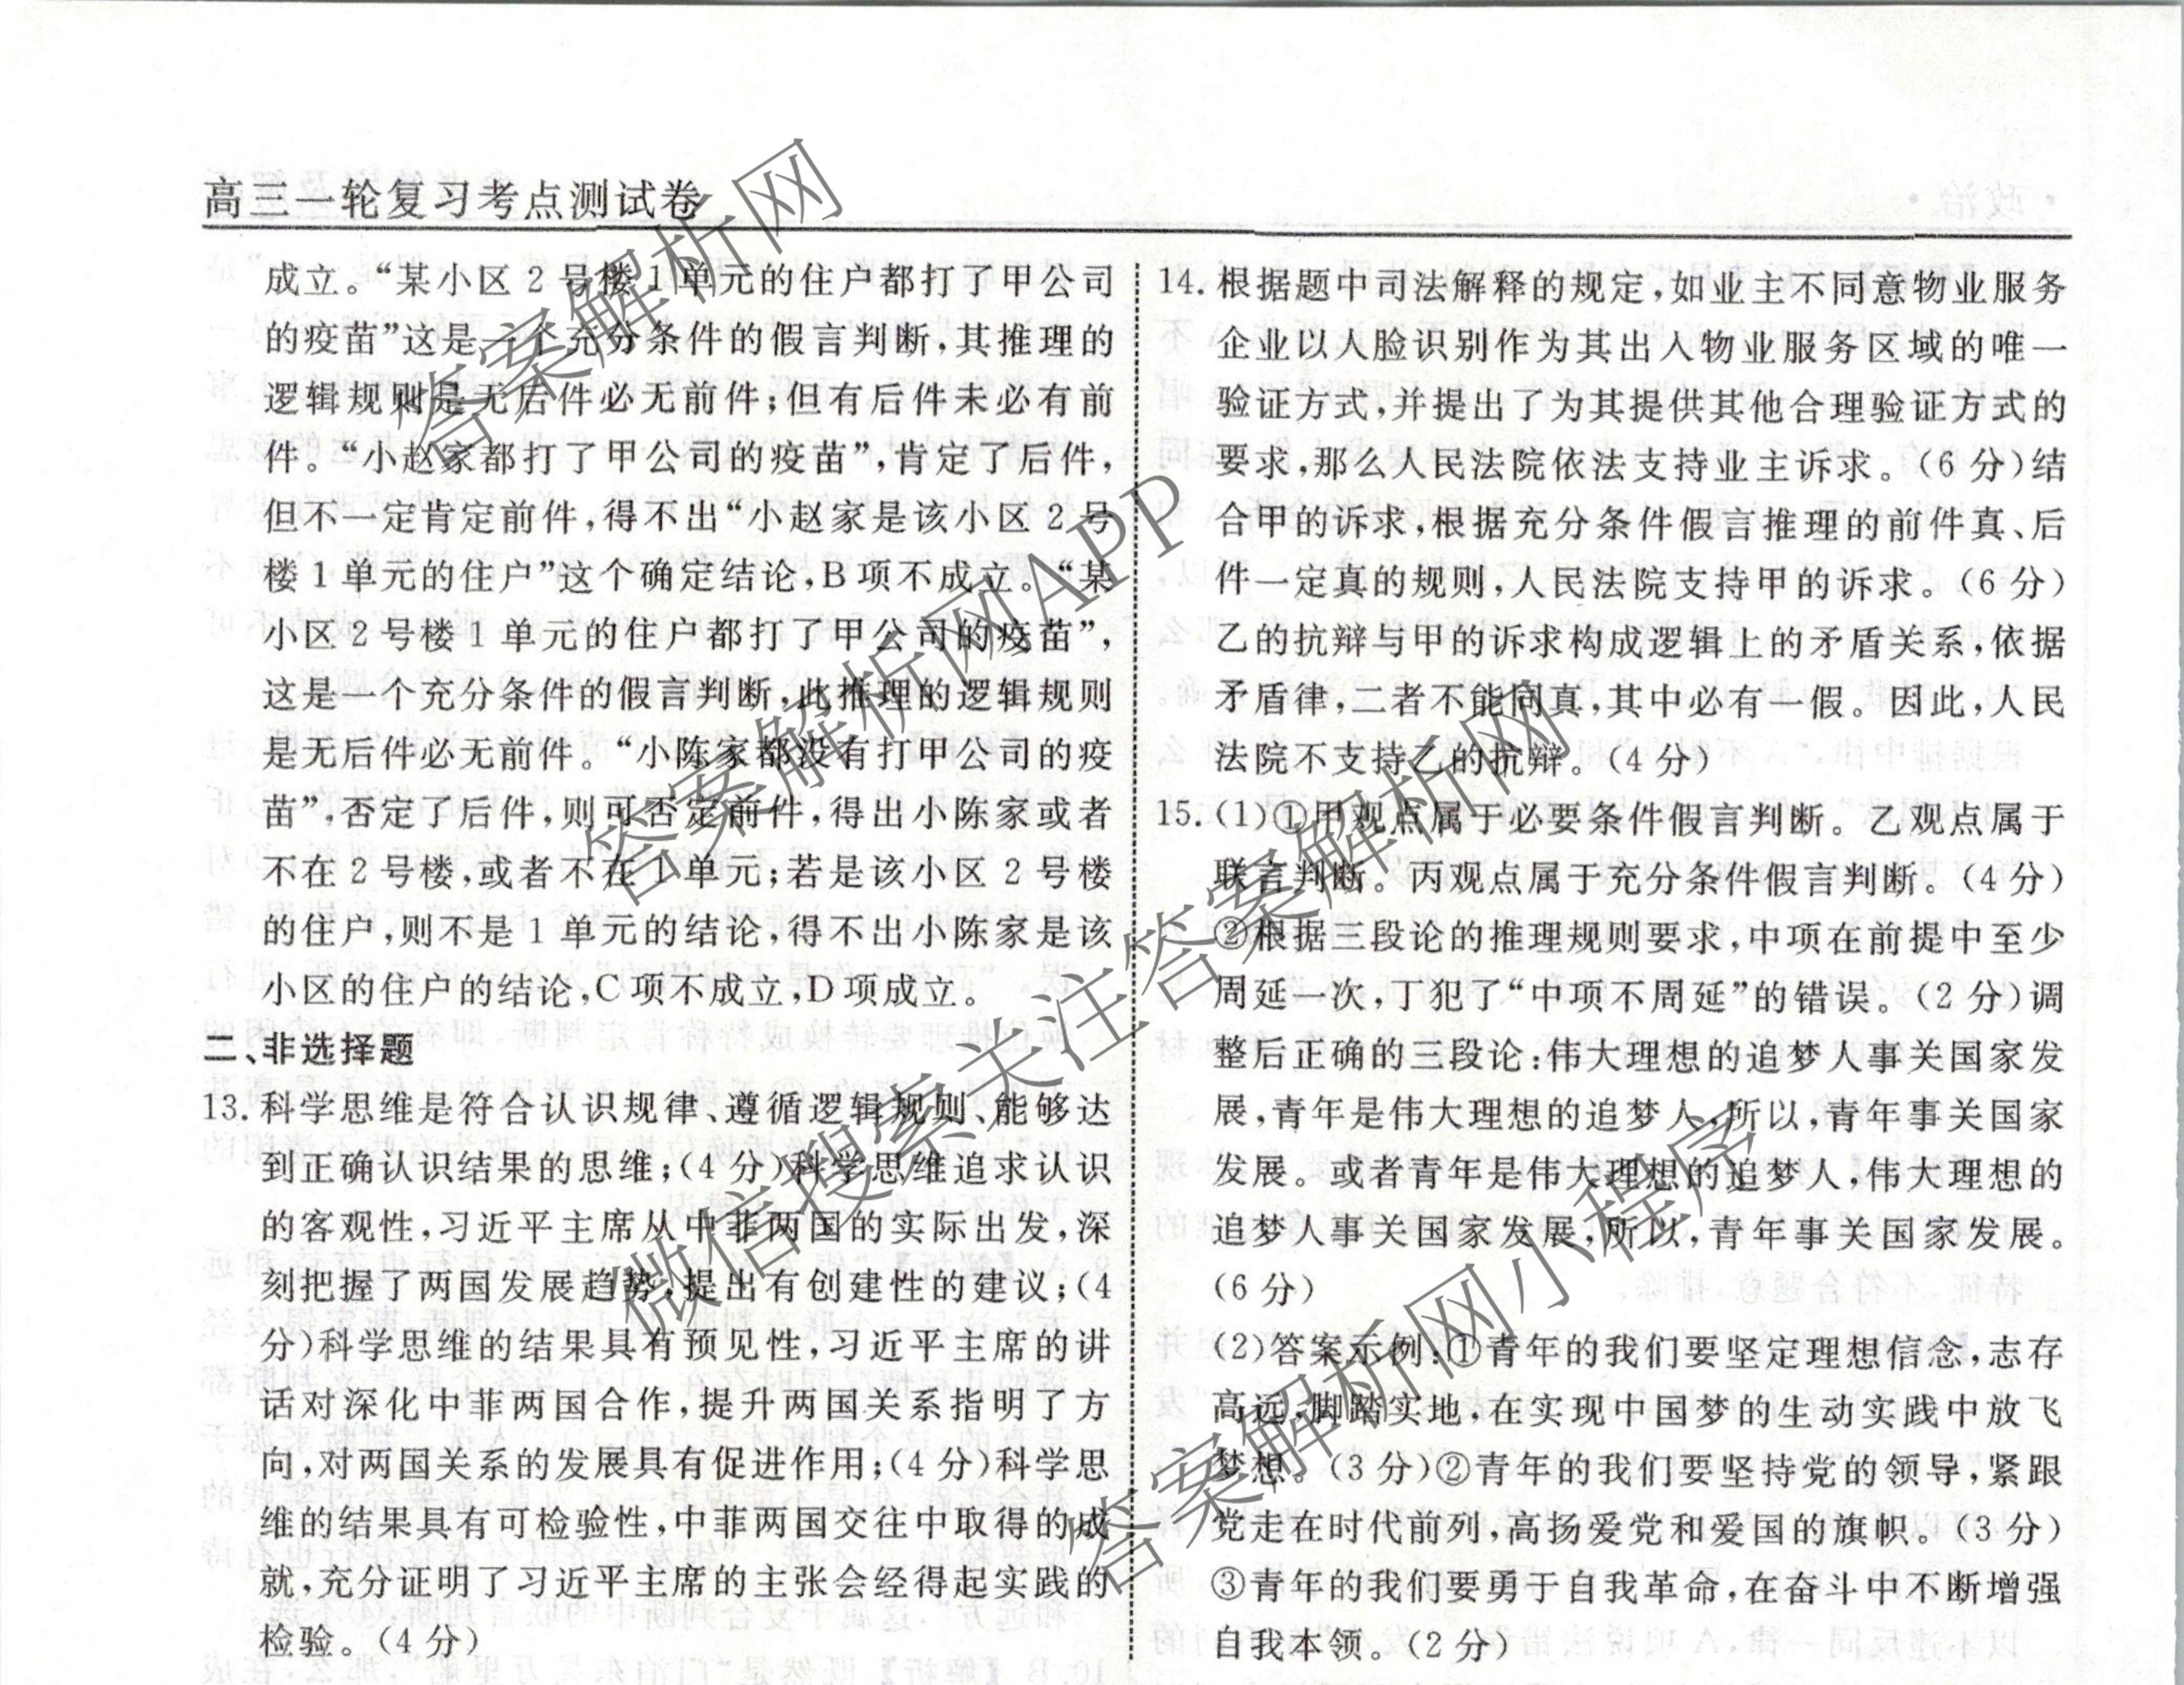 高三一轮复习考点测试卷
成立。“某小区 2 号楼 1 单元的住户都打了甲公司
的疫苗”这是一个充分条件的假言判断，其推理的
逻辑规则是无后件必无前件；但有后件未必有前
件。“小赵家都打了甲公司的疫苗”，肯定了后件，
但不一定肯定前件，得不出“小赵家是该小区 2 号
楼 1 单元的住户”这个确定结论，B 项不成立。“某
小区 2 号楼 1 单元的住户都打了甲公司的疫苗”，
这是一个充分条件的假言判断，此推理的逻辑规则
是无后件必无前件。“小陈家都没有打甲公司的疫
苗”，否定了后件，则可否定前件，得出小陈家或者
不在 2 号楼，或者不在 1 单元；若是该小区 2 号楼
的住户，则不是 1 单元的结论，得不出小陈家是该
小区的住户的结论，C 项不成立，D 项成立。
二、非选择题
13. 科学思维是符合认识规律、遵循逻辑规则、能够达
到正确认识结果的思维；(4 分)科学思维追求认识
的客观性，习近平主席从中菲两国的实际出发，深
刻把握了两国发展趋势，提出有创建性的建议；(4
分)科学思维的结果具有预见性，习近平主席的讲
话对深化中菲两国合作，提升两国关系指明了方
向，对两国关系的发展具有促进作用；(4 分)科学思
维的结果具有可检验性，中菲两国交往中取得的成
就，充分证明了习近平主席的主张会经得起实践的
检验。(4 分)
14. 根据题中司法解释的规定，如业主不同意物业服务
企业以人脸识别作为其出入物业服务区域的唯一
验证方式，并提出了为其提供其他合理验证方式的
要求，那么人民法院依法支持业主诉求。(6 分)结
合甲的诉求，根据充分条件假言推理的前件真、后
件一定真的规则，人民法院支持甲的诉求。(6 分)
乙的抗辩与甲的诉求构成逻辑上的矛盾关系，依据
矛盾律，二者不能同真，其中必有一假。因此，人民
法院不支持乙的抗辩。(4 分)
15. (1)①甲观点属于必要条件假言判断。乙观点属于
联言判断。丙观点属于充分条件假言判断。(4 分)
②根据三段论的推理规则要求，中项在前提中至少
周延一次，丁犯了“中项不周延”的错误。(2 分)调
整后正确的三段论：伟大理想的追梦人事关国家发
展，青年是伟大理想的追梦人，所以，青年事关国家
发展。或者青年是伟大理想的追梦人，伟大理想的
追梦人事关国家发展，所以，青年事关国家发展。
(6 分)
(2)答案示例：①青年的我们要坚定理想信念，志存
高远，脚踏实地，在实现中国梦的生动实践中放飞
梦想。(3 分)②青年的我们要坚持党的领导，紧跟
党走在时代前列，高扬爱党和爱国的旗帜。(3 分)
③青年的我们要勇于自我革命，在奋斗中不断增强
自我本领。(2 分)
答案解析网
答案解析网APP
微信搜索关注答案解析网
答案解析网小程序